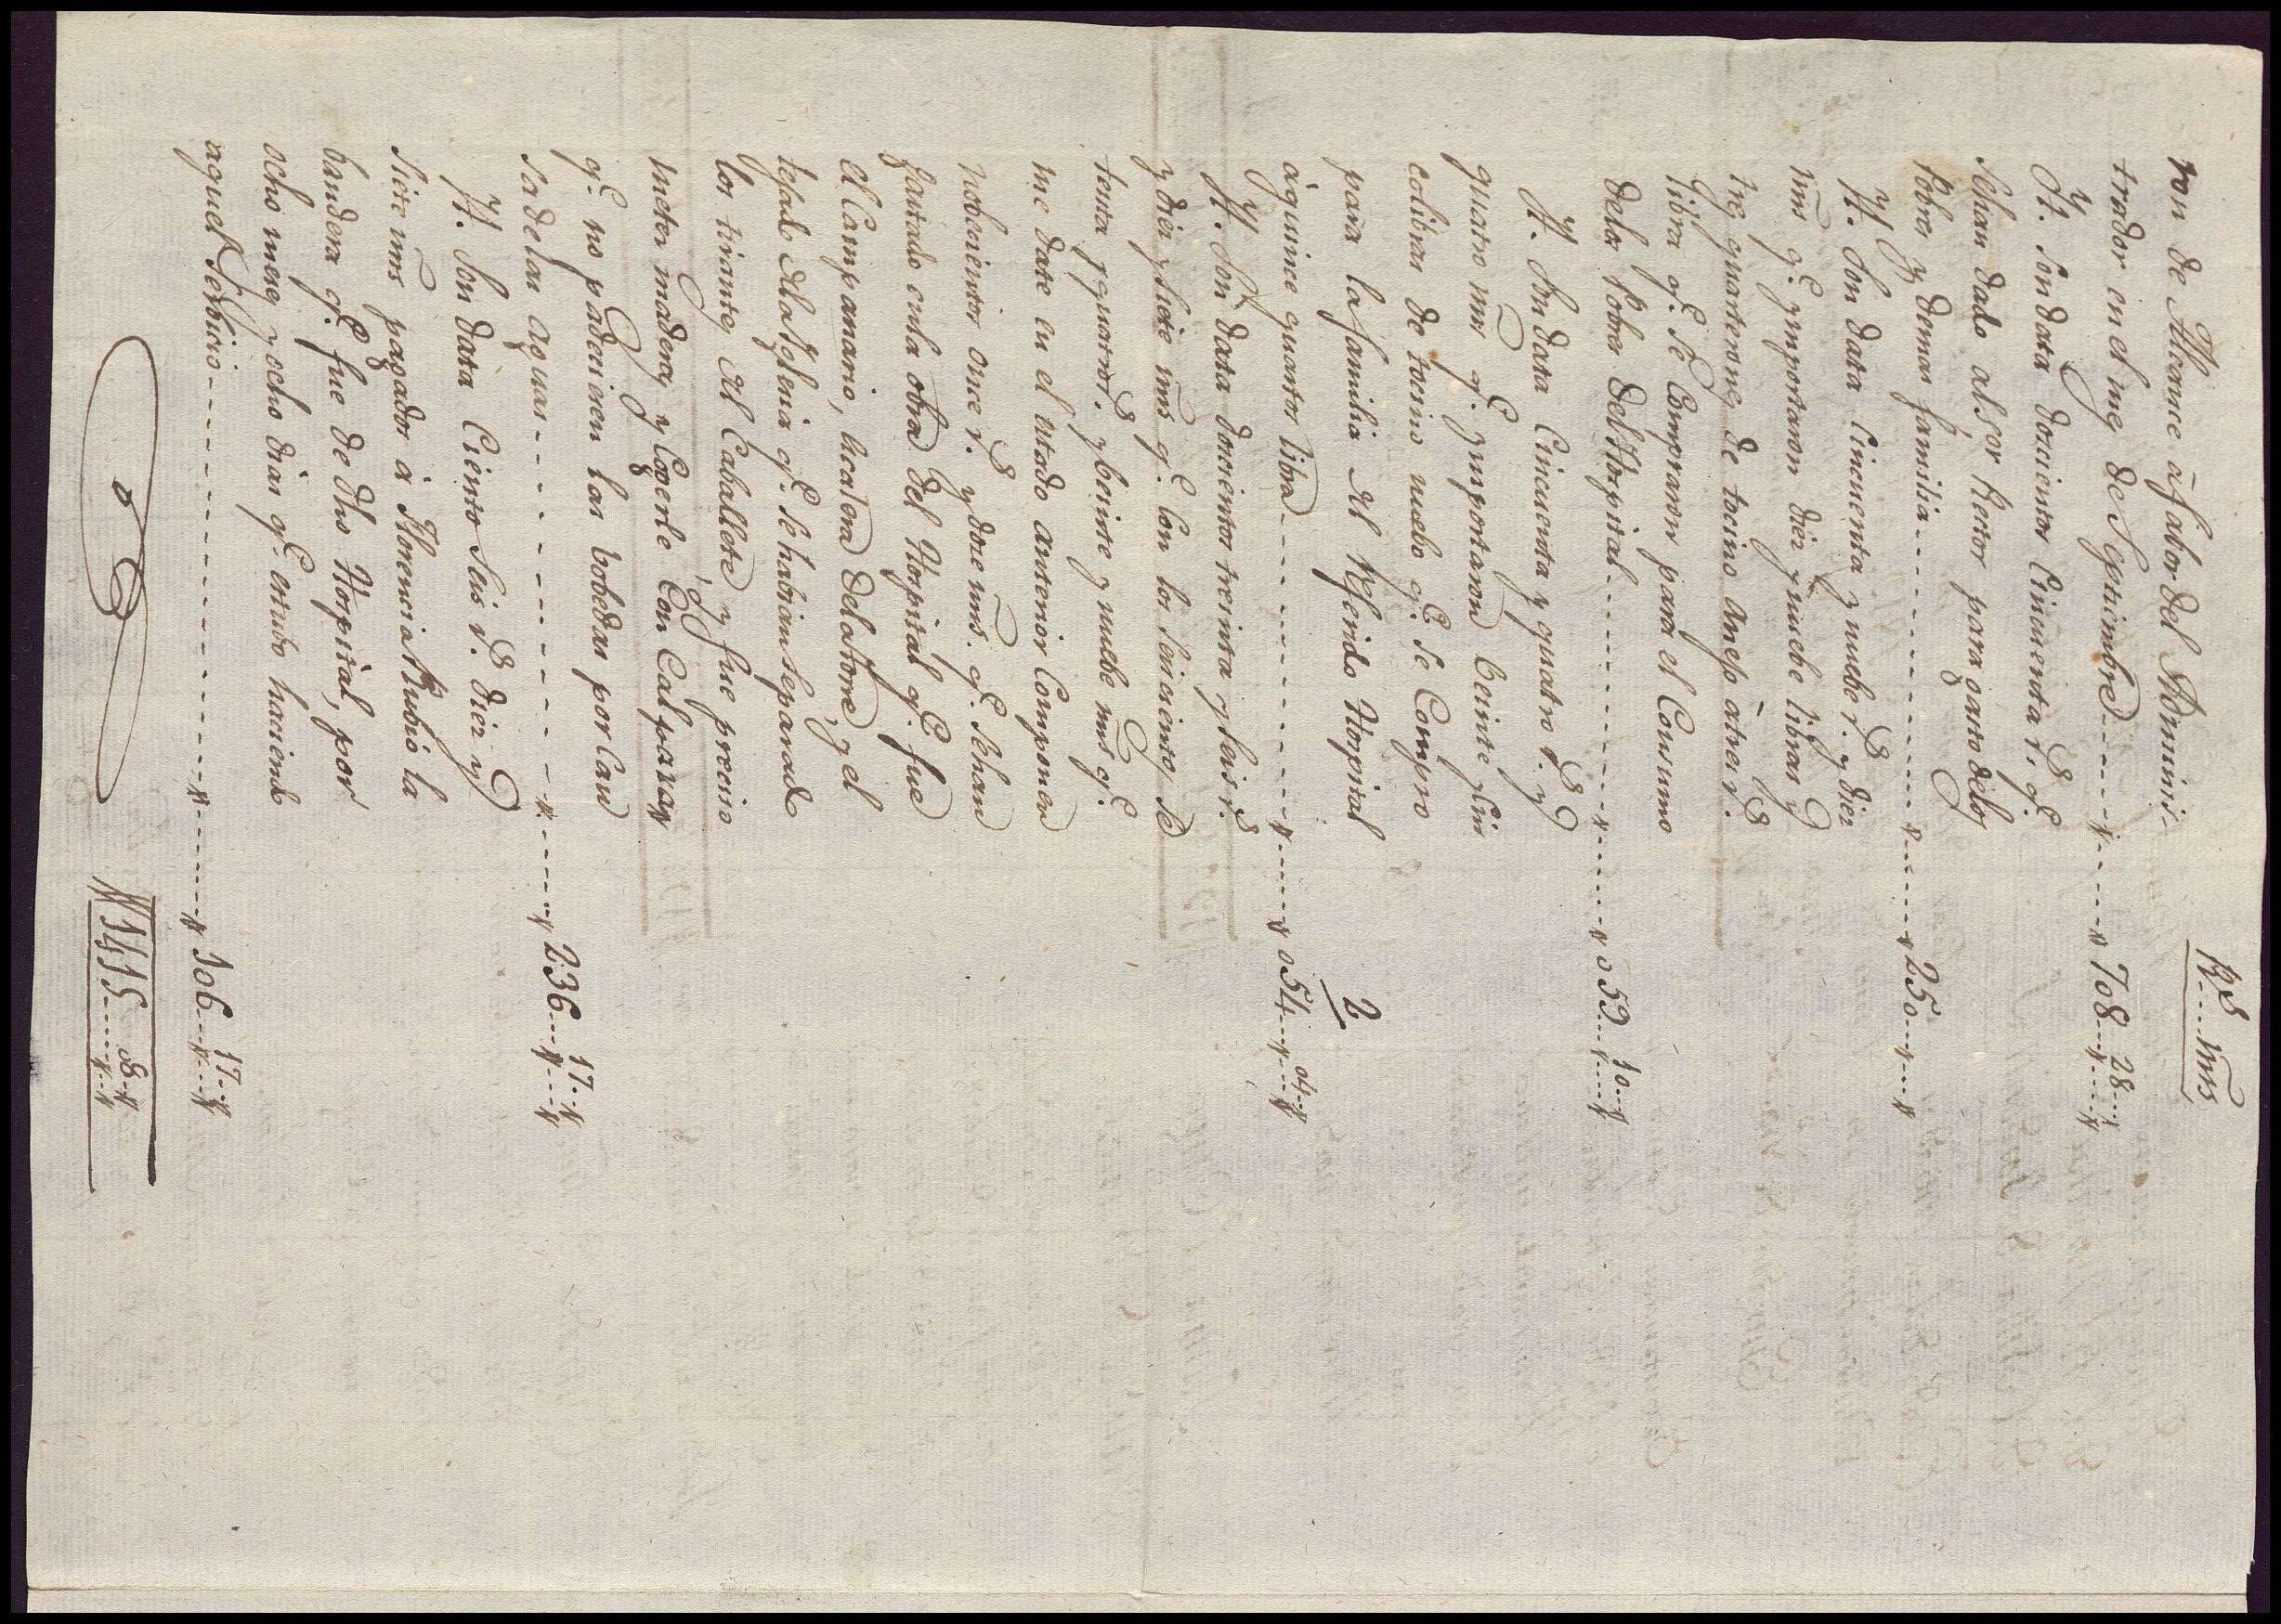 R.s .... mrs
ron de Alcance a fabor del Adminis-
trador en el mes de Septiembre ---- 708 .. 28 ..
Yt. Son data docientos cincuenta r.s q.e
sehan dado al s.or Rector para gasto delos
Pobres y demas familia ---- 250 ....
Yt. Son data cincuenta y nuebe r.s y diez
mrs q.e ymportaron diez y nuebe libras y
tres quarterones de tocino anejo a tres r.s
libra q.e se Compraron para el Consumo
delos Pobres del Hospital ---- 059 .. 10 ..
Yt. Son data Cincuenta y quatro r.s y
quatro mrs q.e ymportaron beinte y sin
co libras de tosino nuebo q.e se Compro
para la familia del Referido Hospital 2
a quince quartos libra ---- 054 .. 04 ..
Yt. Son data docientos treinta y seis r.s
y diez y siete mrs q.e con los seiscientos se
tenta y quatro r.s y beinte y nuebe mrs q.e
me date en el estado anterior Componen
nobecientos once r.s y doce mrs. q.e sehan
gastado en la obra del Hospital q.e fue
el Campanario, escalera de la torre, y el
tejado de la Yglesia q.e se habian separado
los tirantes del Caballete y fue preciso
meter maderas y Coxerle con Cal para
q.e no padecieren las bobedas por cau
sa de las aguas ---- 236 .. 17 ..
Yt. Son data Ciento seis r.s diez y
siete mrs pagados a Florencia Rubio la
bandera q.e fue de dho Hospital, por
ocho meses y ocho dias q.e estubo haciendo
aquel Serbicio ---- 106 .. 17 ..
1415 .. 08 ..